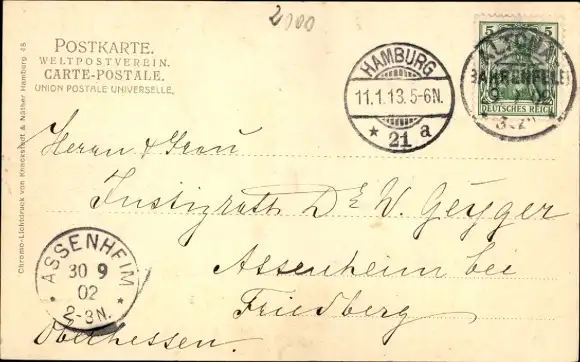 2000
POSTKARTE.
WELTPOSTVEREIN.
CARTE-POSTALE.
UNION POSTALE UNIVERSELLE.
HAMBURG
11.1.13. 5-6N.
* 21 a
5 5
ALTONA
BAHRENFELD
DEUTSCHES REICH
Herrn & Frau
Justizrath Dr W. Geyger
Assenheim bei
Friedberg
Oberhessen.
ASSENHEIM
30 9
02
2-3N.
Chromo-Lichtdruck von Knackstedt & Näther Hamburg 45